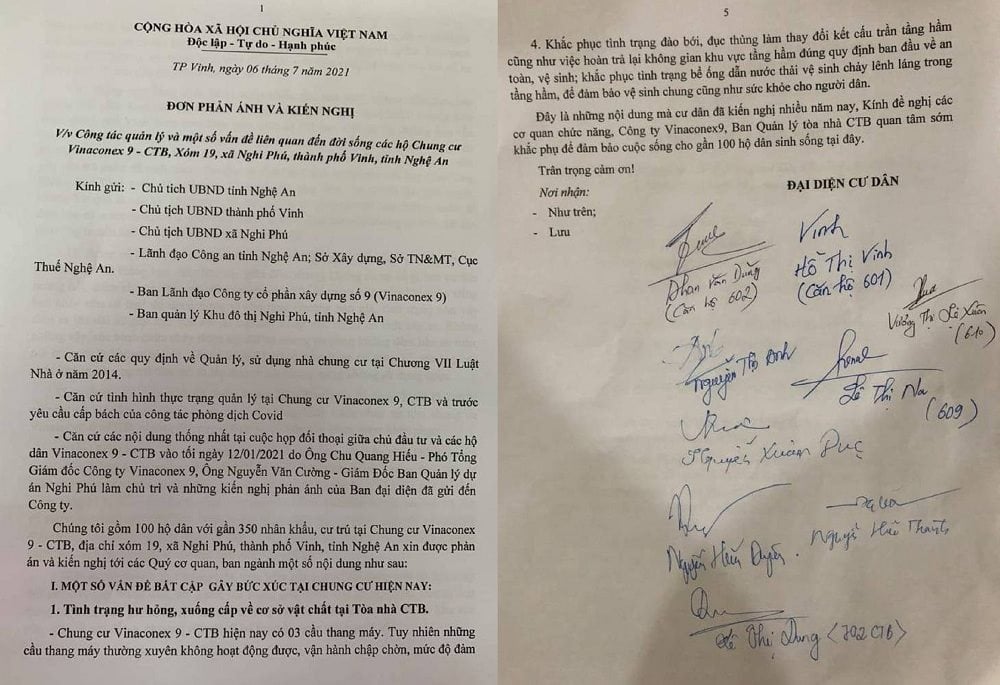 1
CỘNG HÒA XÃ HỘI CHỦ NGHĨA VIỆT NAM
Độc lập - Tự do - Hạnh phúc
TP Vinh, ngày 06 tháng 7 năm 2021
ĐƠN PHẢN ÁNH VÀ KIẾN NGHỊ
V/v Công tác quản lý và một số vấn đề liên quan đến đời sống các hộ Chung cư
Vinaconex 9 - CTB, Xóm 19, xã Nghi Phú, thành phố Vinh, tỉnh Nghệ An
Kính gửi: - Chủ tich UBND tỉnh Nghệ An
- Chủ tịch UBND thành phố Vinh
- Chủ tịch UBND xã Nghi Phú
- Lãnh đạo Công an tỉnh Nghệ An; Sở Xây dựng, Sở TN&MT, Cục
Thuế Nghệ An.
- Ban Lãnh đạo Công ty cổ phần xây dựng số 9 (Vinaconex 9)
- Ban quản lý Khu đô thị Nghi Phú, tỉnh Nghệ An
- Căn cứ các quy định về Quản lý, sử dụng nhà chung cư tại Chương VII Luật
Nhà ở năm 2014.
- Căn cứ tình hình thực trạng quản lý tại Chung cư Vinaconex 9, CTB và trước
yêu cầu cấp bách của công tác phòng dịch Covid
- Căn cứ các nội dung thống nhất tại cuộc họp đối thoại giữa chủ đầu tư và các hộ
dân Vinaconex 9 - CTB vào tối ngày 12/01/2021 do Ông Chu Quang Hiếu - Phó Tổng
Giám đốc Công ty Vinaconex 9, Ông Nguyễn Văn Cường - Giám Đốc Ban Quản lý dự
án Nghi Phú làm chủ trì và những kiến nghị phản ánh của Ban đại diện đã gửi đến
Công ty.
Chúng tôi gồm 100 hộ dân với gần 350 nhân khẩu, cư trú tại Chung cư Vinaconex
9 - CTB, địa chỉ xóm 19, xã Nghi Phú, thành phố Vinh, tỉnh Nghệ An xin được phản
án và kiến nghị tới các Quý cơ quan, ban ngành một số nội dung như sau:
I. MỘT SỐ VẤN ĐỀ BẤT CẬP GÂY BỨC XÚC TẠI CHUNG CƯ HIỆN NAY:
1. Tình trạng hư hỏng, xuống cấp về cơ sở vật chất tại Tòa nhà CTB.
- Chung cư Vinaconex 9 - CTB hiện nay có 03 cầu thang máy. Tuy nhiên những
cầu thang máy thường xuyên không hoạt động được, vận hành chập chờn, mức độ đảm
5
4. Khắc phục tình trạng đào bới, đục thủng làm thay đổi kết cấu trần tầng hầm
cũng như việc hoàn trả lại không gian khu vực tầng hầm đúng quy định ban đầu về an
toàn, vệ sinh; khắc phục tình trạng bể ống dẫn nước thải vệ sinh chảy lênh láng trong
tầng hầm, để đảm bảo vệ sinh chung cũng như sức khỏe cho người dân.
Đây là những nội dung mà cư dân đã kiến nghị nhiều năm nay, Kính đề nghị các
cơ quan chức năng, Công ty Vinaconex9, Ban Quản lý tòa nhà CTB quan tâm sớm
khắc phụ để đảm bảo cuộc sống cho gần 100 hộ dân sinh sống tại đây.
Trân trọng cảm ơn!
Nơi nhận:
ĐẠI DIỆN CƯ DÂN
- Như trên;
- Lưu
Vinh
Phan Văn Dũng
(Căn hộ 602)
Hồ Thị Vinh
(Căn hộ 601)
Vương Thị Lệ Xuân
(610)
Nguyễn Thị Anh
Lê Thị Na
(609)
Nguyễn Xuân Đức
Nguyễn Hữu Duyên
Nguyễn Hữu Thanh
Lê Thị Dung <702 CTB>